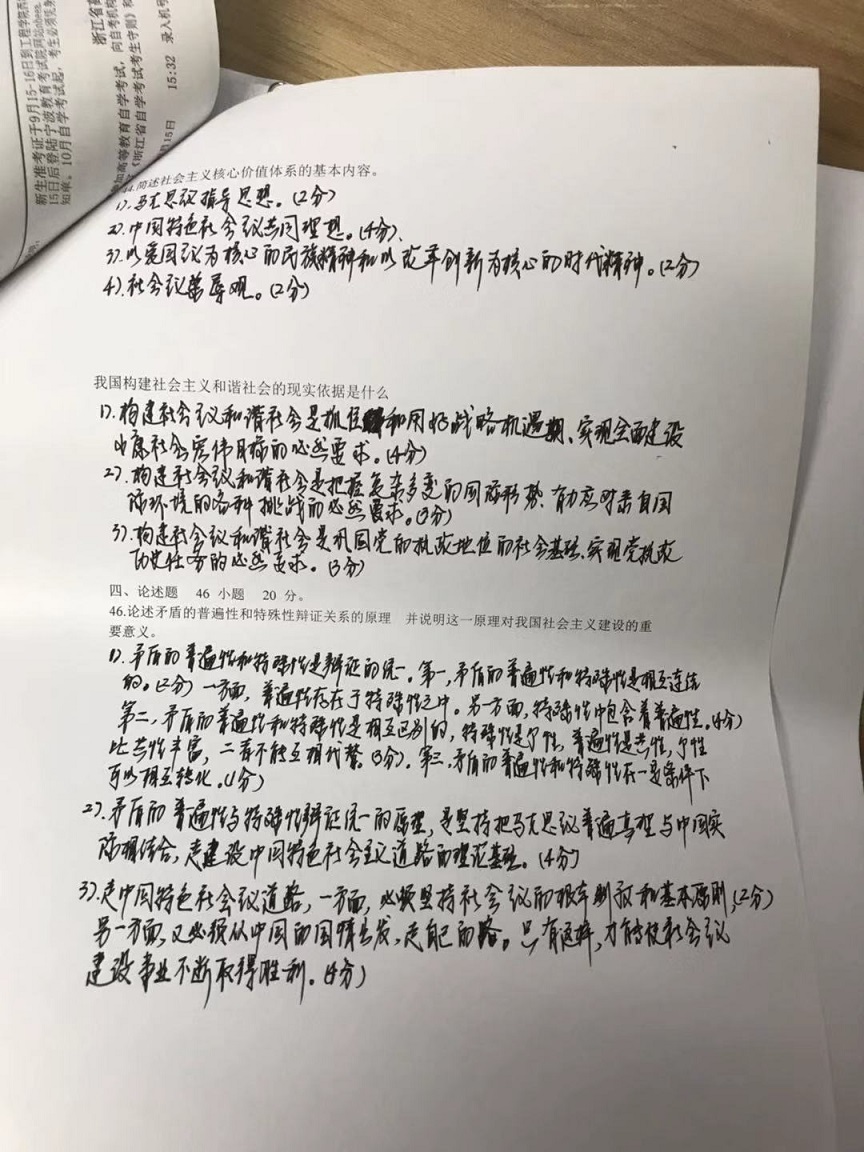 新生准考证于9月15-16日到工程学院西
15日后登陆宁波教育考试院网站
知单。10月自学考试起，考生必须凭身
浙江省
高等教育自学考试，向自考机构
《浙江省自学考试考生守则》和
15日 15:32 录入机号
44.简述社会主义核心价值体系的基本内容。
1).马克思议指导思想。(2分)
2).中国特色社会议共同理想。(4分)、
3).以爱国议为核心的民族精神和以改革创新为核心的时代精神。(2分)
4).社会议荣辱观。(2分)
我国构建社会主义和谐社会的现实依据是什么
1).构建社会议和谐社会是抓住和用好战略机遇期、实现全面建设
小康社会宏伟目标的必然要求。(4分)
2).构建社会议和谐社会是把握复杂多变的国际形势、有力应对来自国
际环境的各种挑战的必然要求。(3分)
3).构建社会议和谐社会是巩固党的执政地位的社会基础、实现党执政
历史任务的必然要求。(3分)
四、论述题 46 小题 20 分。
46.论述矛盾的普遍性和特殊性辩证关系的原理 并说明这一原理对我国社会主义建设的重
要意义。
1).矛盾的普遍性和特殊性是辩证的统一。第一,矛盾的普遍性和特殊性是相互连结
的。(2分) 一方面，普遍性存在于特殊性之中。另一方面,特殊性中包含着普遍性。(4分)
第二,矛盾的普遍性和特殊性是相互区别的,特殊性是个性,普遍性是共性,个性
比共性丰富，二者不能互相代替。(3分). 第三.矛盾的普遍性和特殊性在一定条件下
可以相互转化。(1分)
2).矛盾的普遍性与特殊性辩证统一的原理,是坚持把马克思议普遍真理与中国实
际相结合,走建设中国特色社会主义道路的理论基础。(4分)
3).走中国特色社会议道路,一方面,必须坚持社会议的根本制度和基本原则,(2分)
另一方面,又必须从中国的国情出发,走自己的路。只有这样,才能使社会议
建设事业不断取得胜利。(4分)